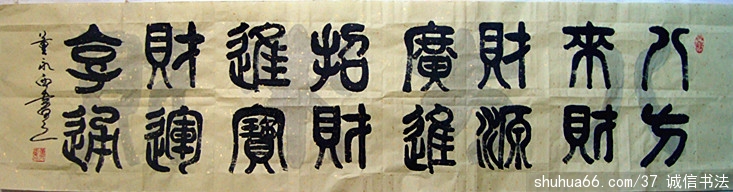 八方
來財
財源
廣進
招財
進寶
財運
亨通
董永
shuhua66.com/37 诚信书法